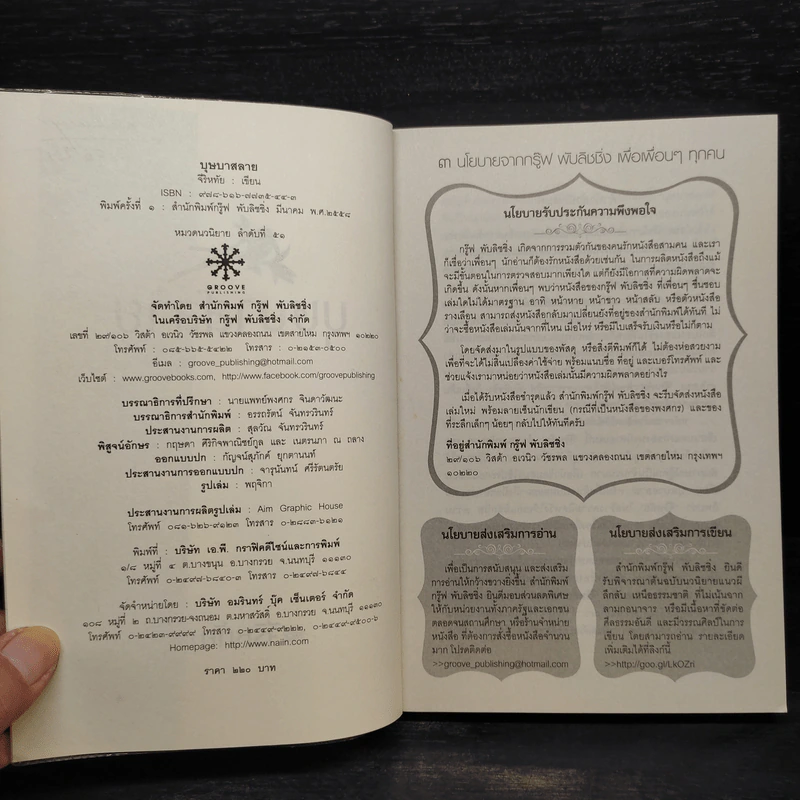 บุษบาสลาย
จิรหทัย : เขียน
ISBN : ๙๗๘-๖๑๖-๗๗๓๕-๔๔-๓
พิมพ์ครั้งที่ ๑ : สำนักพิมพ์กรู๊ฟ พับลิชชิ่ง มีนาคม พ.ศ.๒๕๕๘
หมวดนวนิยาย ลำดับที่ ๕๑
GROOVE
PUBLISHING
จัดทำโดย สำนักพิมพ์ กรู๊ฟ พับลิชชิ่ง
ในเครือบริษัท กรู๊ฟ พับลิชชิ่ง จำกัด
เลขที่ ๒๙/๑๐๖ วิสต้า อเวนิว วัชรพล แขวงคลองถนน เขตสายไหม กรุงเทพฯ ๑๐๒๒๐
โทรศัพท์ : ๐๘๕-๖๖๕-๕๔๒๒ โทรสาร : ๐-๒๑๕๓-๐๕๐๐
อีเมล : groove_publishing@hotmail.com
เว็บไซต์ : www.groovebooks.com, http://www.facebook.com/groovepublishing
บรรณาธิการที่ปรึกษา : นายแพทย์พงศกร จินดาวัฒนะ
บรรณาธิการสำนักพิมพ์ : อรรถรัตน์ จันทรวรินทร์
ประสานงานการผลิต : สุลวัณ จันทรวรินทร์
พิสูจน์อักษร : กฤษดา ศิริกิจพาณิชย์กูล และ เนตรนภา ณ ถลาง
ออกแบบปก : กัญจน์สุภัคค์ ยุกตานนท์
ประสานงานการออกแบบปก : จารุนันทน์ ศรีรัตนตรัย
รูปเล่ม : พฤจิกา
ประสานงานการผลิตรูปเล่ม : Aim Graphic House
โทรศัพท์ ๐๘๑-๖๒๖-๙๑๒๓ โทรสาร ๐-๒๘๘๓-๖๑๒๑
พิมพ์ที่ : บริษัท เอ.พี. กราฟิคดีไซน์และการพิมพ์
๑/๘ หมู่ที่ ๔ ต.บางขนุน อ.บางกรวย จ.นนทบุรี ๑๑๑๓๐
โทรศัพท์ ๐-๒๔๙๗-๖๘๔๐-๓ โทรสาร ๐-๒๔๙๗-๖๘๔๔
จัดจำหน่ายโดย : บริษัท อมรินทร์ บุ๊ค เซ็นเตอร์ จำกัด
๑๐๘ หมู่ที่ ๒ ถ.บางกรวย-จงถนอม ต.มหาสวัสดิ์ อ.บางกรวย จ.นนทบุรี ๑๑๑๓๐
โทรศัพท์ ๐-๒๔๒๓-๙๙๙๙ โทรสาร ๐-๒๔๔๙-๙๒๒๒, ๐-๒๔๔๙-๙๕๐๐-๖
Homepage: http://www.naiin.com
ราคา ๒๒๐ บาท
๓ นโยบายจากกรู๊ฟ พับลิชชิ่ง เพื่อเพื่อนๆ ทุกคน
นโยบายรับประกันความพึงพอใจ
กรู๊ฟ พับลิชชิ่ง เกิดจากการรวมตัวกันของคนรักหนังสือสามคน และเรา
ก็เชื่อว่าเพื่อนๆ นักอ่านก็ต้องรักหนังสือด้วยเช่นกัน ในการผลิตหนังสือถึงแม้
จะมีขั้นตอนในการตรวจสอบมากเพียงใด แต่ก็ยังมีโอกาสที่ความผิดพลาดจะ
เกิดขึ้น ดังนั้นหากเพื่อนๆ พบว่าหนังสือของกรู๊ฟ พับลิชชิ่ง ที่เพื่อนๆ ชื่นชอบ
เล่มใดไม่ได้มาตรฐาน อาทิ หน้าหาย หน้าขาว หน้าสลับ หรือตัวหนังสือ
รางเลือน สามารถส่งหนังสือกลับมาเปลี่ยนยังที่อยู่ของสำนักพิมพ์ได้ทันที ไม่
ว่าจะซื้อหนังสือเล่มนั้นจากที่ไหน เมื่อไหร่ หรือมีใบเสร็จรับเงินหรือไม่ก็ตาม
โดยจัดส่งมาในรูปแบบของพัสดุ หรือสิ่งตีพิมพ์ก็ได้ ไม่ต้องห่อสวยงาม
เพื่อที่จะได้ไม่สิ้นเปลืองค่าใช้จ่าย พร้อมแนบชื่อ ที่อยู่ และเบอร์โทรศัพท์ และ
ช่วยแจ้งเรามาหน่อยว่าหนังสือเล่มนั้นมีความผิดพลาดอย่างไร
เมื่อได้รับหนังสือชำรุดแล้ว สำนักพิมพ์ กรู๊ฟ พับลิชชิ่ง จะรีบจัดส่งหนังสือ
เล่มใหม่ พร้อมลายเซ็นนักเขียน (กรณีที่เป็นหนังสือของพงศกร) และของ
ที่ระลึกเล็กๆ น้อยๆ กลับไปให้ทันทีครับ
ที่อยู่สำนักพิมพ์ กรู๊ฟ พับลิชชิ่ง
๒๙/๑๐๖ วิสต้า อเวนิว วัชรพล แขวงคลองถนน เขตสายไหม กรุงเทพฯ
๑๐๒๒๐
นโยบายส่งเสริมการอ่าน
เพื่อเป็นการสนับสนุน และส่งเสริม
การอ่านให้กว้างขวางยิ่งขึ้น สำนักพิมพ์
กรู๊ฟ พับลิชชิ่ง ยินดีมอบส่วนลดพิเศษ
ให้กับหน่วยงานทั้งภาครัฐและเอกชน
ตลอดจนสถานศึกษา หรือร้านจำหน่าย
หนังสือ ที่ต้องการสั่งซื้อหนังสือจำนวน
มาก โปรดติดต่อ
>>groove_publishing@hotmail.com
นโยบายส่งเสริมการเขียน
สำนักพิมพ์กรู๊ฟ พับลิชชิ่ง ยินดี
รับพิจารณาต้นฉบับนวนิยายแนวผี
ลึกลับ เหนือธรรมชาติ ที่ไม่เน้นฉาก
ลามกอนาจาร หรือมีเนื้อหาที่ขัดต่อ
ศีลธรรมอันดี และมีวรรณศิลป์ในการ
เขียน โดยสามารถอ่าน รายละเอียด
เพิ่มเติมได้ที่ลิงก์นี้
>>http://goo.gl/LkOZri